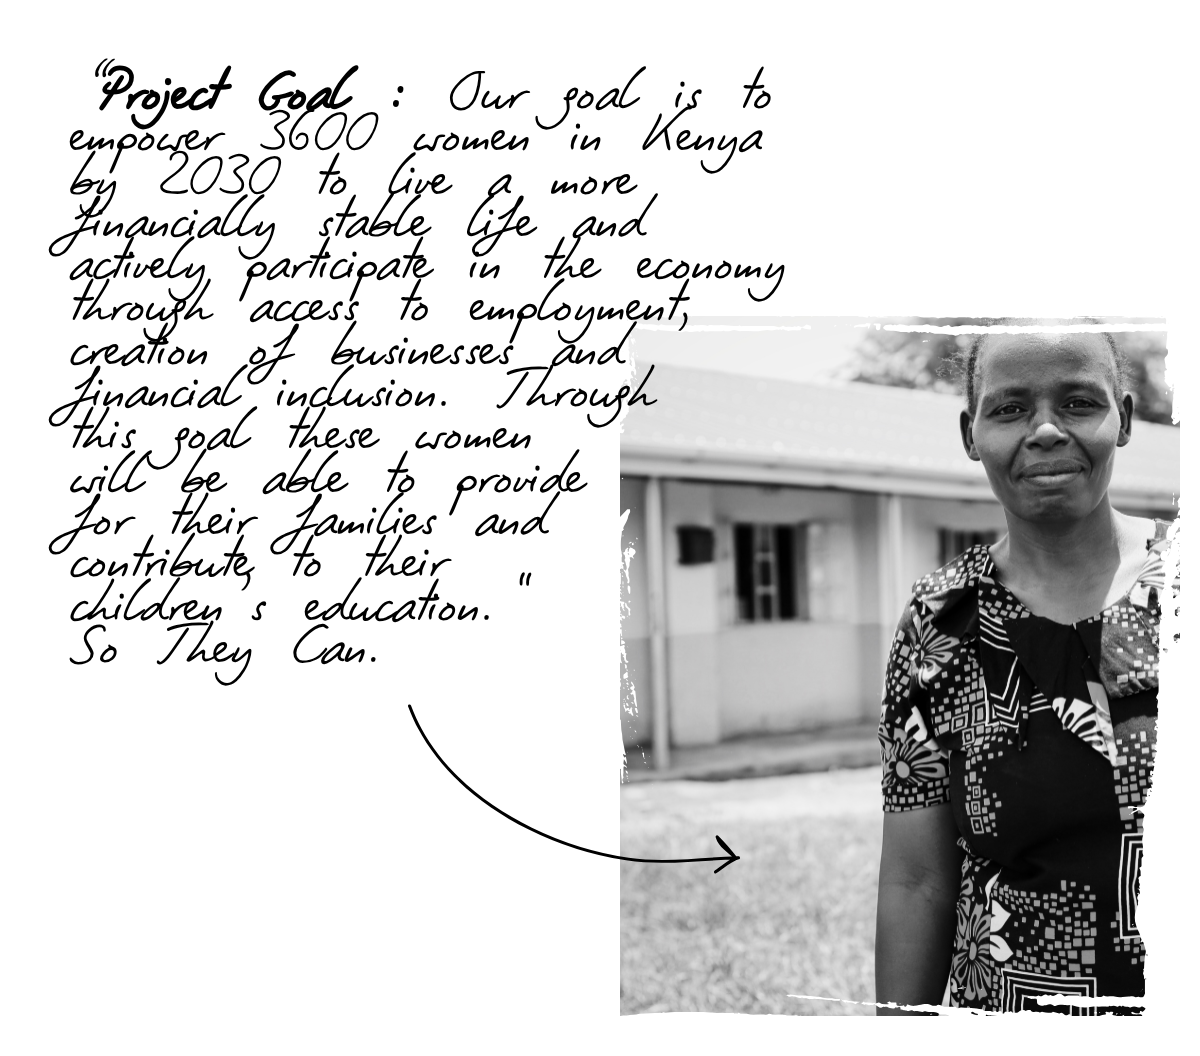 "Project Goal : Our goal is to
empower 3600 women in Kenya
by 2030 to live a more
financially stable life and
actively participate in the economy
through access to employment,
creation of businesses and
financial inclusion. Through
this goal these women
will be able to provide
for their families and
contribute to their
children's education. "
So They Can.